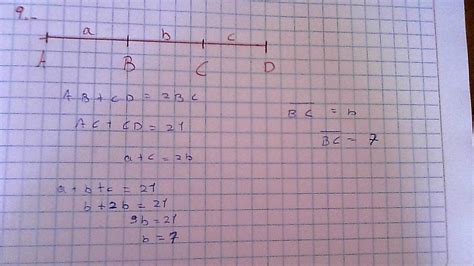 9.-
a b c
A B C D
AB + CD = 2BC
AC + CD = 21
a + c = 2b
a + b + c = 21
b + 2b = 21
3b = 21
b = 7
BC = b
BC = 7